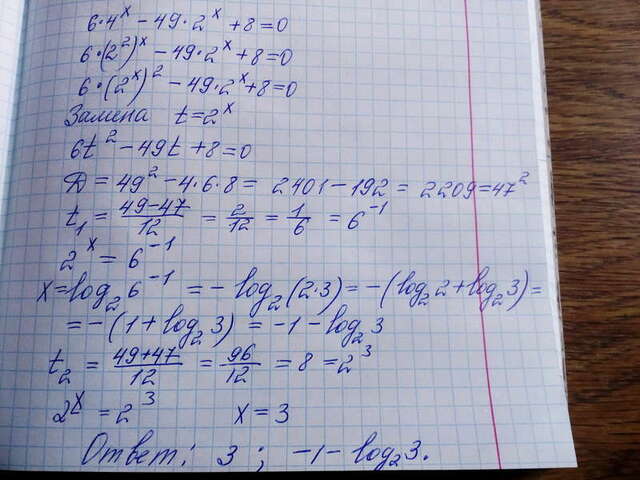 6·4ˣ − 49·2ˣ + 8 = 0
6·(2²)ˣ − 49·2ˣ + 8 = 0
6·(2ˣ)² − 49·2ˣ + 8 = 0
Замена t = 2ˣ
6t² − 49t + 8 = 0
D = 49² − 4·6·8 = 2401 − 192 = 2209 = 47²
t₁ = (49−47)/12 = 2/12 = 1/6 = 6⁻¹
2ˣ = 6⁻¹
x = log₂ 6⁻¹ = − log₂ (2·3) = −(log₂ 2 + log₂ 3) =
= −(1 + log₂ 3) = −1 − log₂ 3
t₂ = (49+47)/12 = 96/12 = 8 = 2³
2ˣ = 2³ x = 3
Ответ: 3 ; −1 − log₂ 3.